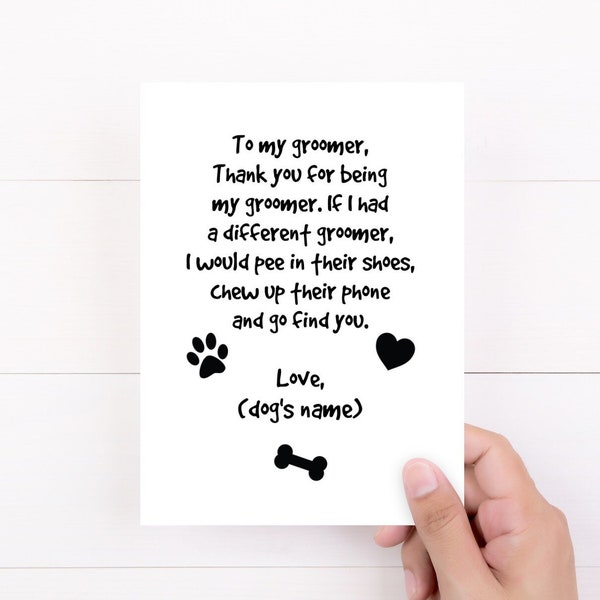 To my groomer,
Thank you for being
my groomer. If I had
a different groomer,
I would pee in their shoes,
chew up their phone
and go find you.
Love,
(dog's name)